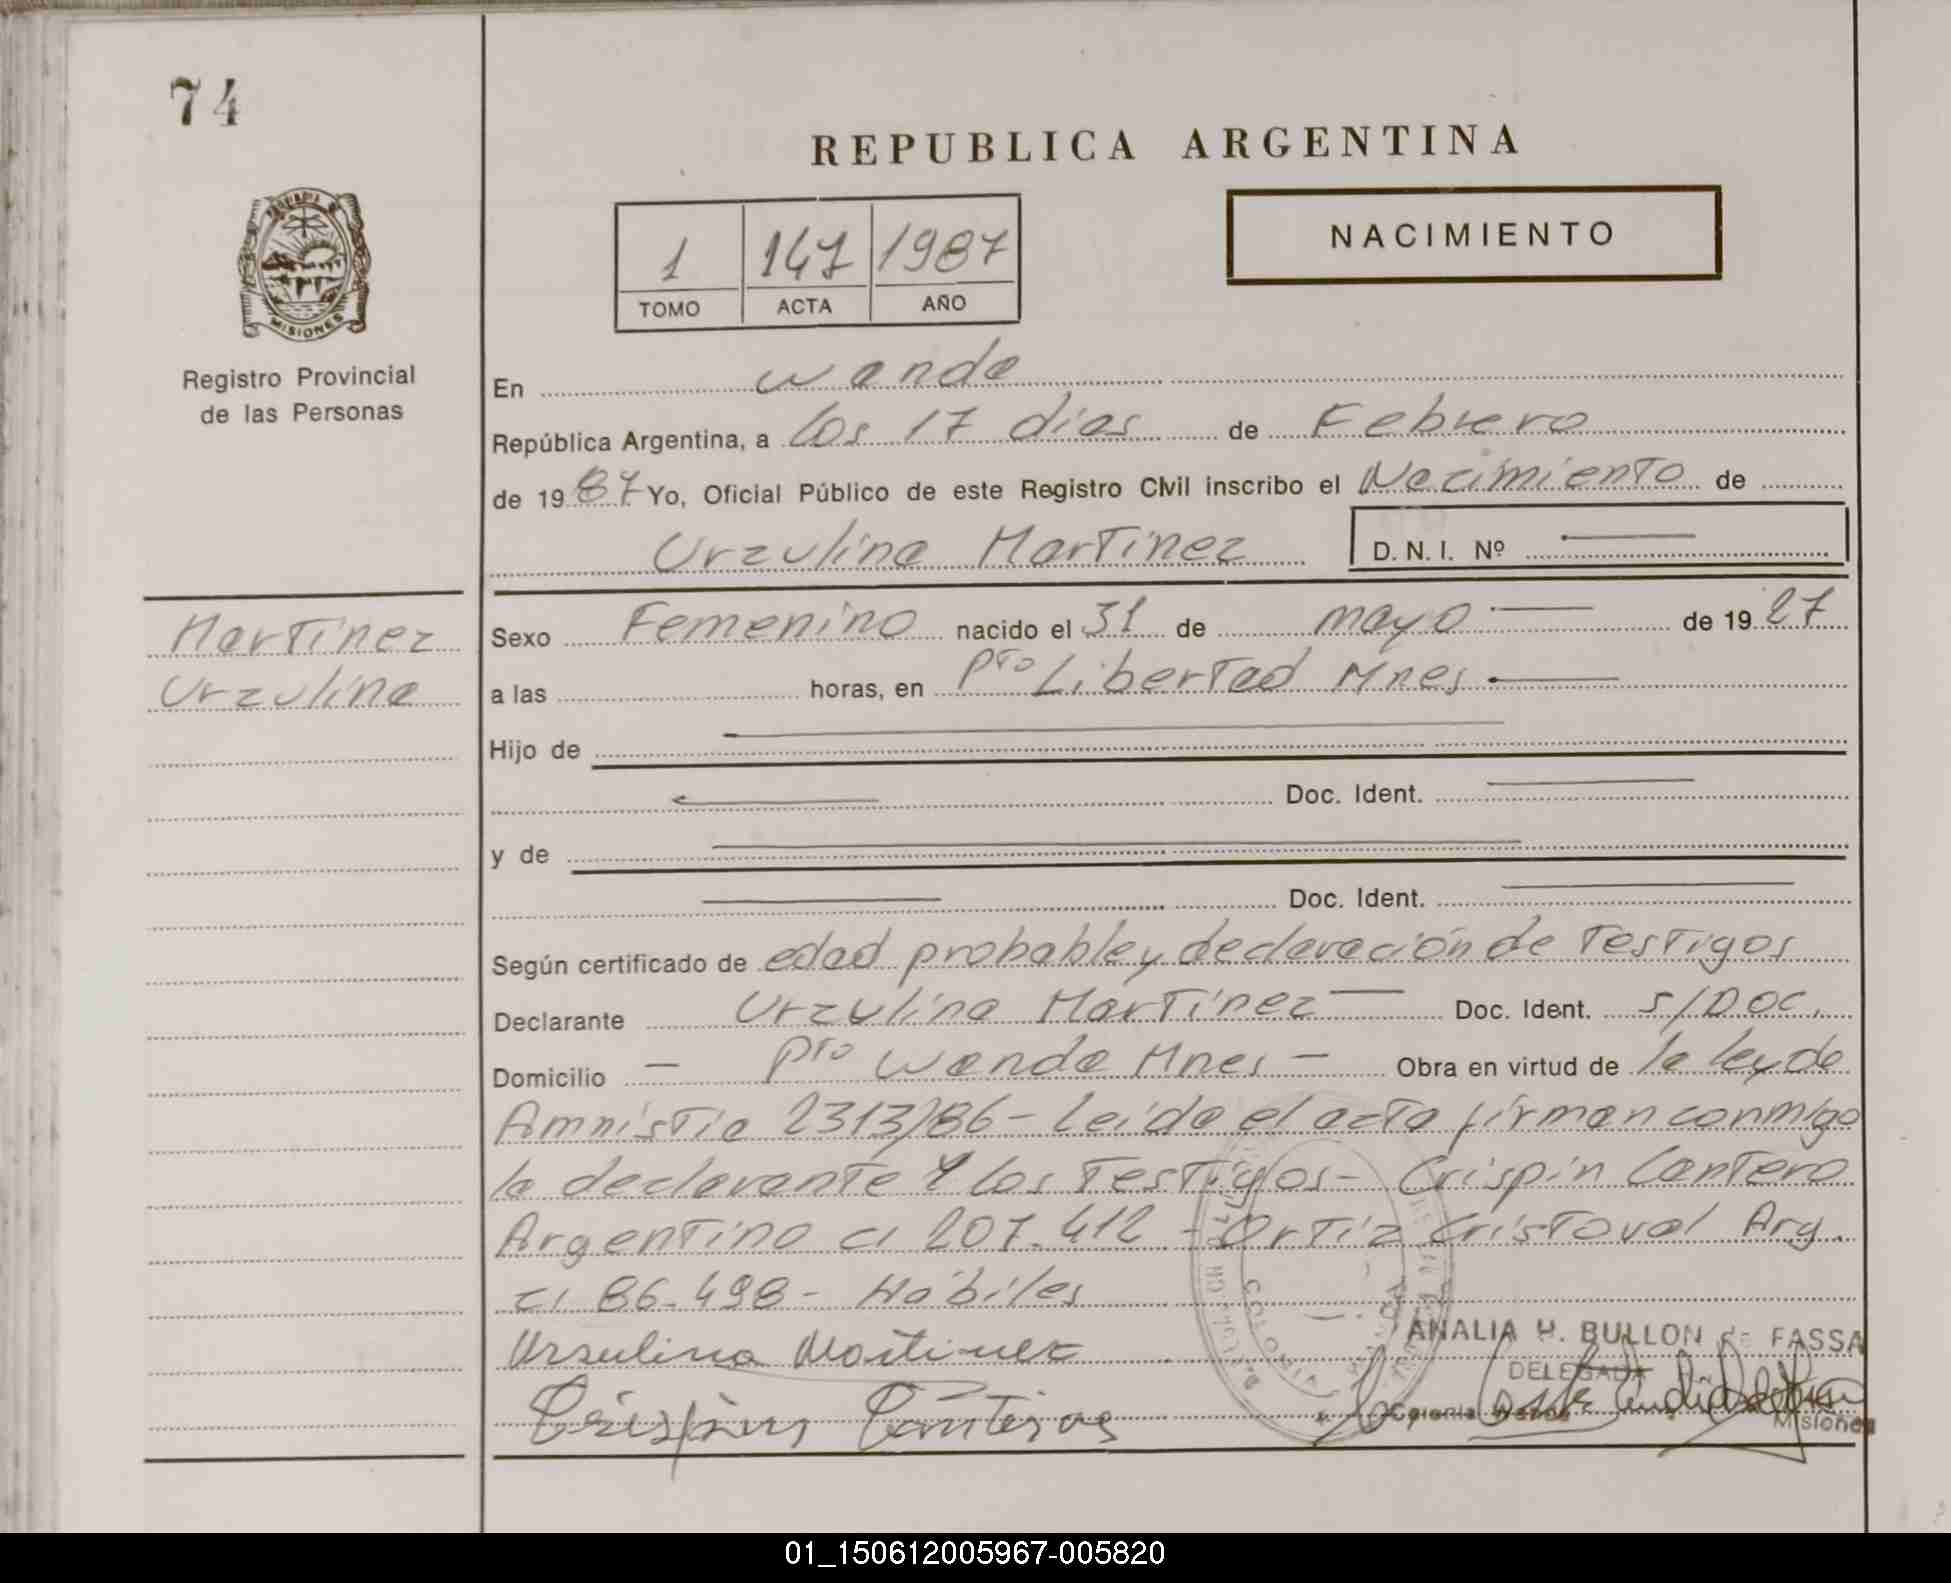 74
REPUBLICA ARGENTINA
1 147 1987
TOMO ACTA AÑO
NACIMIENTO
MISIONES
Registro Provincial
de las Personas
En Wanda
República Argentina, a los 17 días de Febrero
de 1987 Yo, Oficial Público de este Registro Civil inscribo el Nacimiento de
Urzulina Martinez D.N.I. Nº
Martinez
Urzulina
Sexo Femenino nacido el 31 de mayo de 1927
a las horas, en Pto Libertad Mnes
Hijo de
Doc. Ident.
y de
Doc. Ident.
Según certificado de edad probable y declaración de Testigos
Declarante Urzulina Martinez Doc. Ident. S/Doc.
Domicilio - Pto Wanda Mnes - Obra en virtud de la ley de
Amnistia 2313/86 - Leida el acta firman conmigo
la declarante y los Testigos - Crispin Cantero
Argentino ci 207.412 - Ortiz Cristoval Arg.
ci 86.498 - Hábiles
Ursulina Martinez
ANALIA H. BULLON de FASSA
DELEGADA
Colonia Wanda
Misiones
Crispin Canteros
01_150612005967-005820